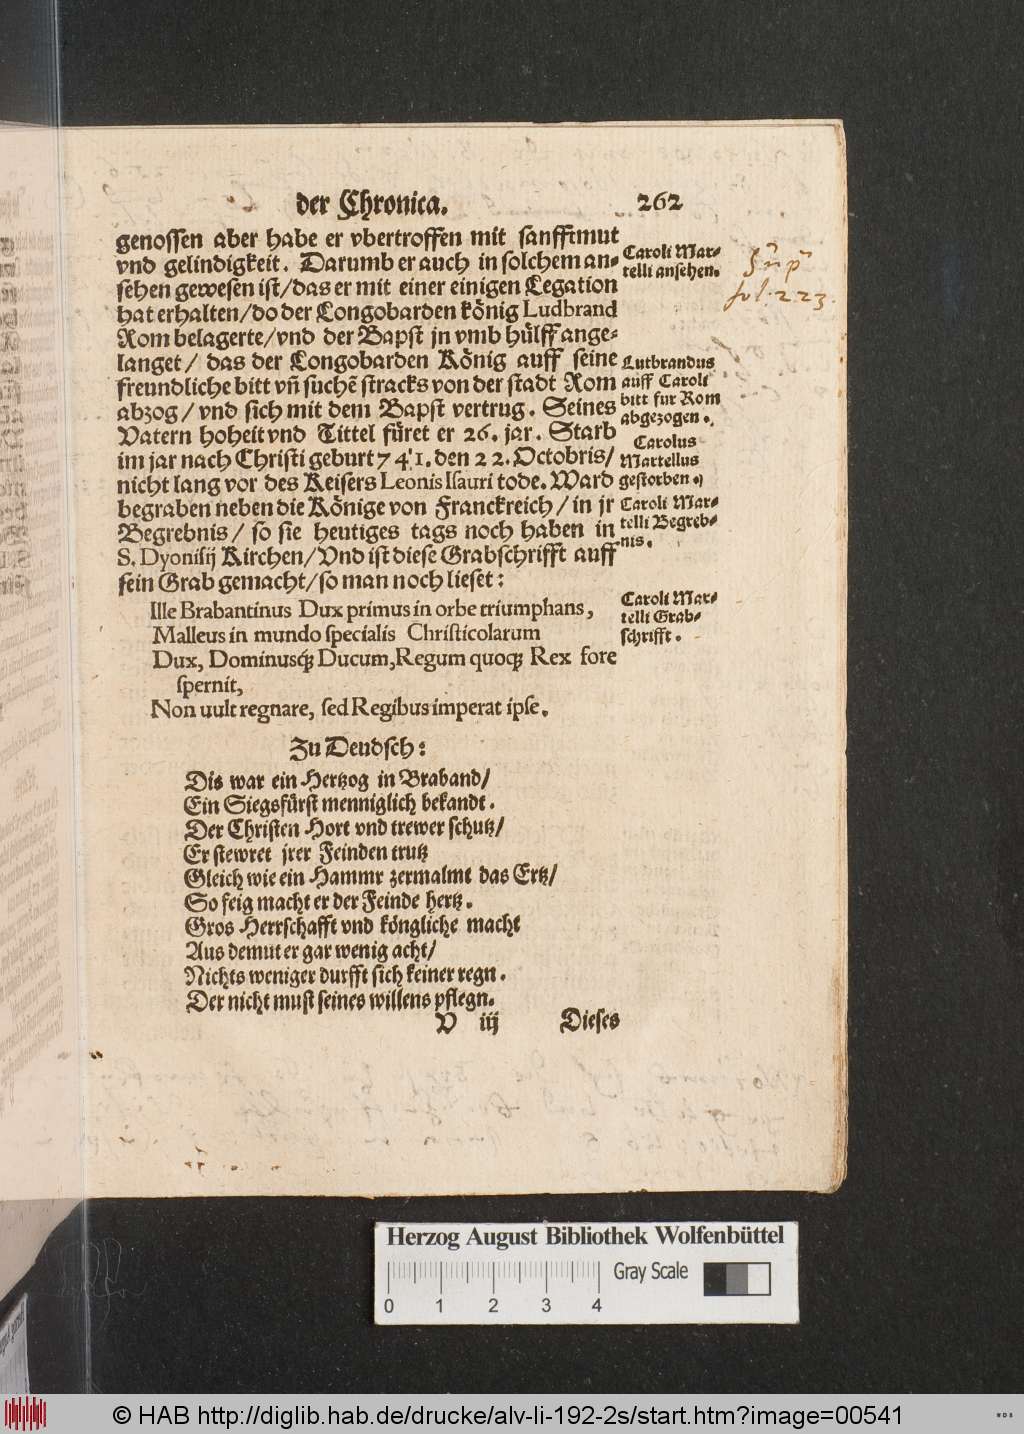 der Chronica. 262
genossen aber habe er vbertroffen mit sanfftmut
vnd gelindigkeit. Darumb er auch in solchem an-
sehen gewesen ist/das er mit einer einigen Legation
hat erhalten/do der Longobarden könig Ludbrand
Rom belagerte/vnd der Bapst jn vmb hülff ange-
langet/ das der Longobarden König auff seine
freundliche bitt vn̄ suchē stracks von der stadt Rom
abzog/ vnd sich mit dem Bapst vertrug. Seines
Vatern hoheit vnd Tittel füret er 26. jar. Starb
im jar nach Christi geburt 741. den 22. Octobris/
nicht lang vor des Keisers Leonis Isauri tode. Ward
begraben neben die Könige von Franckreich/in jr
Begrebnis/ so sie heutiges tags noch haben in
S. Dyonisij Kirchen/Vnd ist diese Grabschrifft auff
sein Grab gemacht/so man noch lieset:
Caroli Mar-
telli ansehen.
fol: 223.
Lutbrandus
auff Caroli
bitt fur Rom
abgezogen.
Carolus
Martellus
gestorben
Caroli Mar-
telli Begreb-
nis.
Caroli Mar-
telli Grab-
schrifft.
Ille Brabantinus Dux primus in orbe triumphans,
Malleus in mundo specialis Christicolarum
Dux, Dominusq́; Ducum, Regum quoq; Rex fore
spernit,
Non uult regnare, sed Regibus imperat ipse.
Zu Deudsch:
Dis war ein Hertzog in Braband/
Ein Siegsfürst menniglich bekandt.
Der Christen Hort vnd trewer schutz/
Er stewret jrer Feinden trutz
Gleich wie ein Hammr zermalmt das Ertz/
So feig macht er der Feinde hertz.
Gros Herrschafft vnd köngliche macht
Aus demut er gar wenig acht/
Nichts weniger durfft sich keiner regn.
Der nicht must seines willens pflegn.
V iij Dieses
Herzog August Bibliothek Wolfenbüttel
Gray Scale
0 1 2 3 4
© HAB http://diglib.hab.de/drucke/alv-li-192-2s/start.htm?image=00541